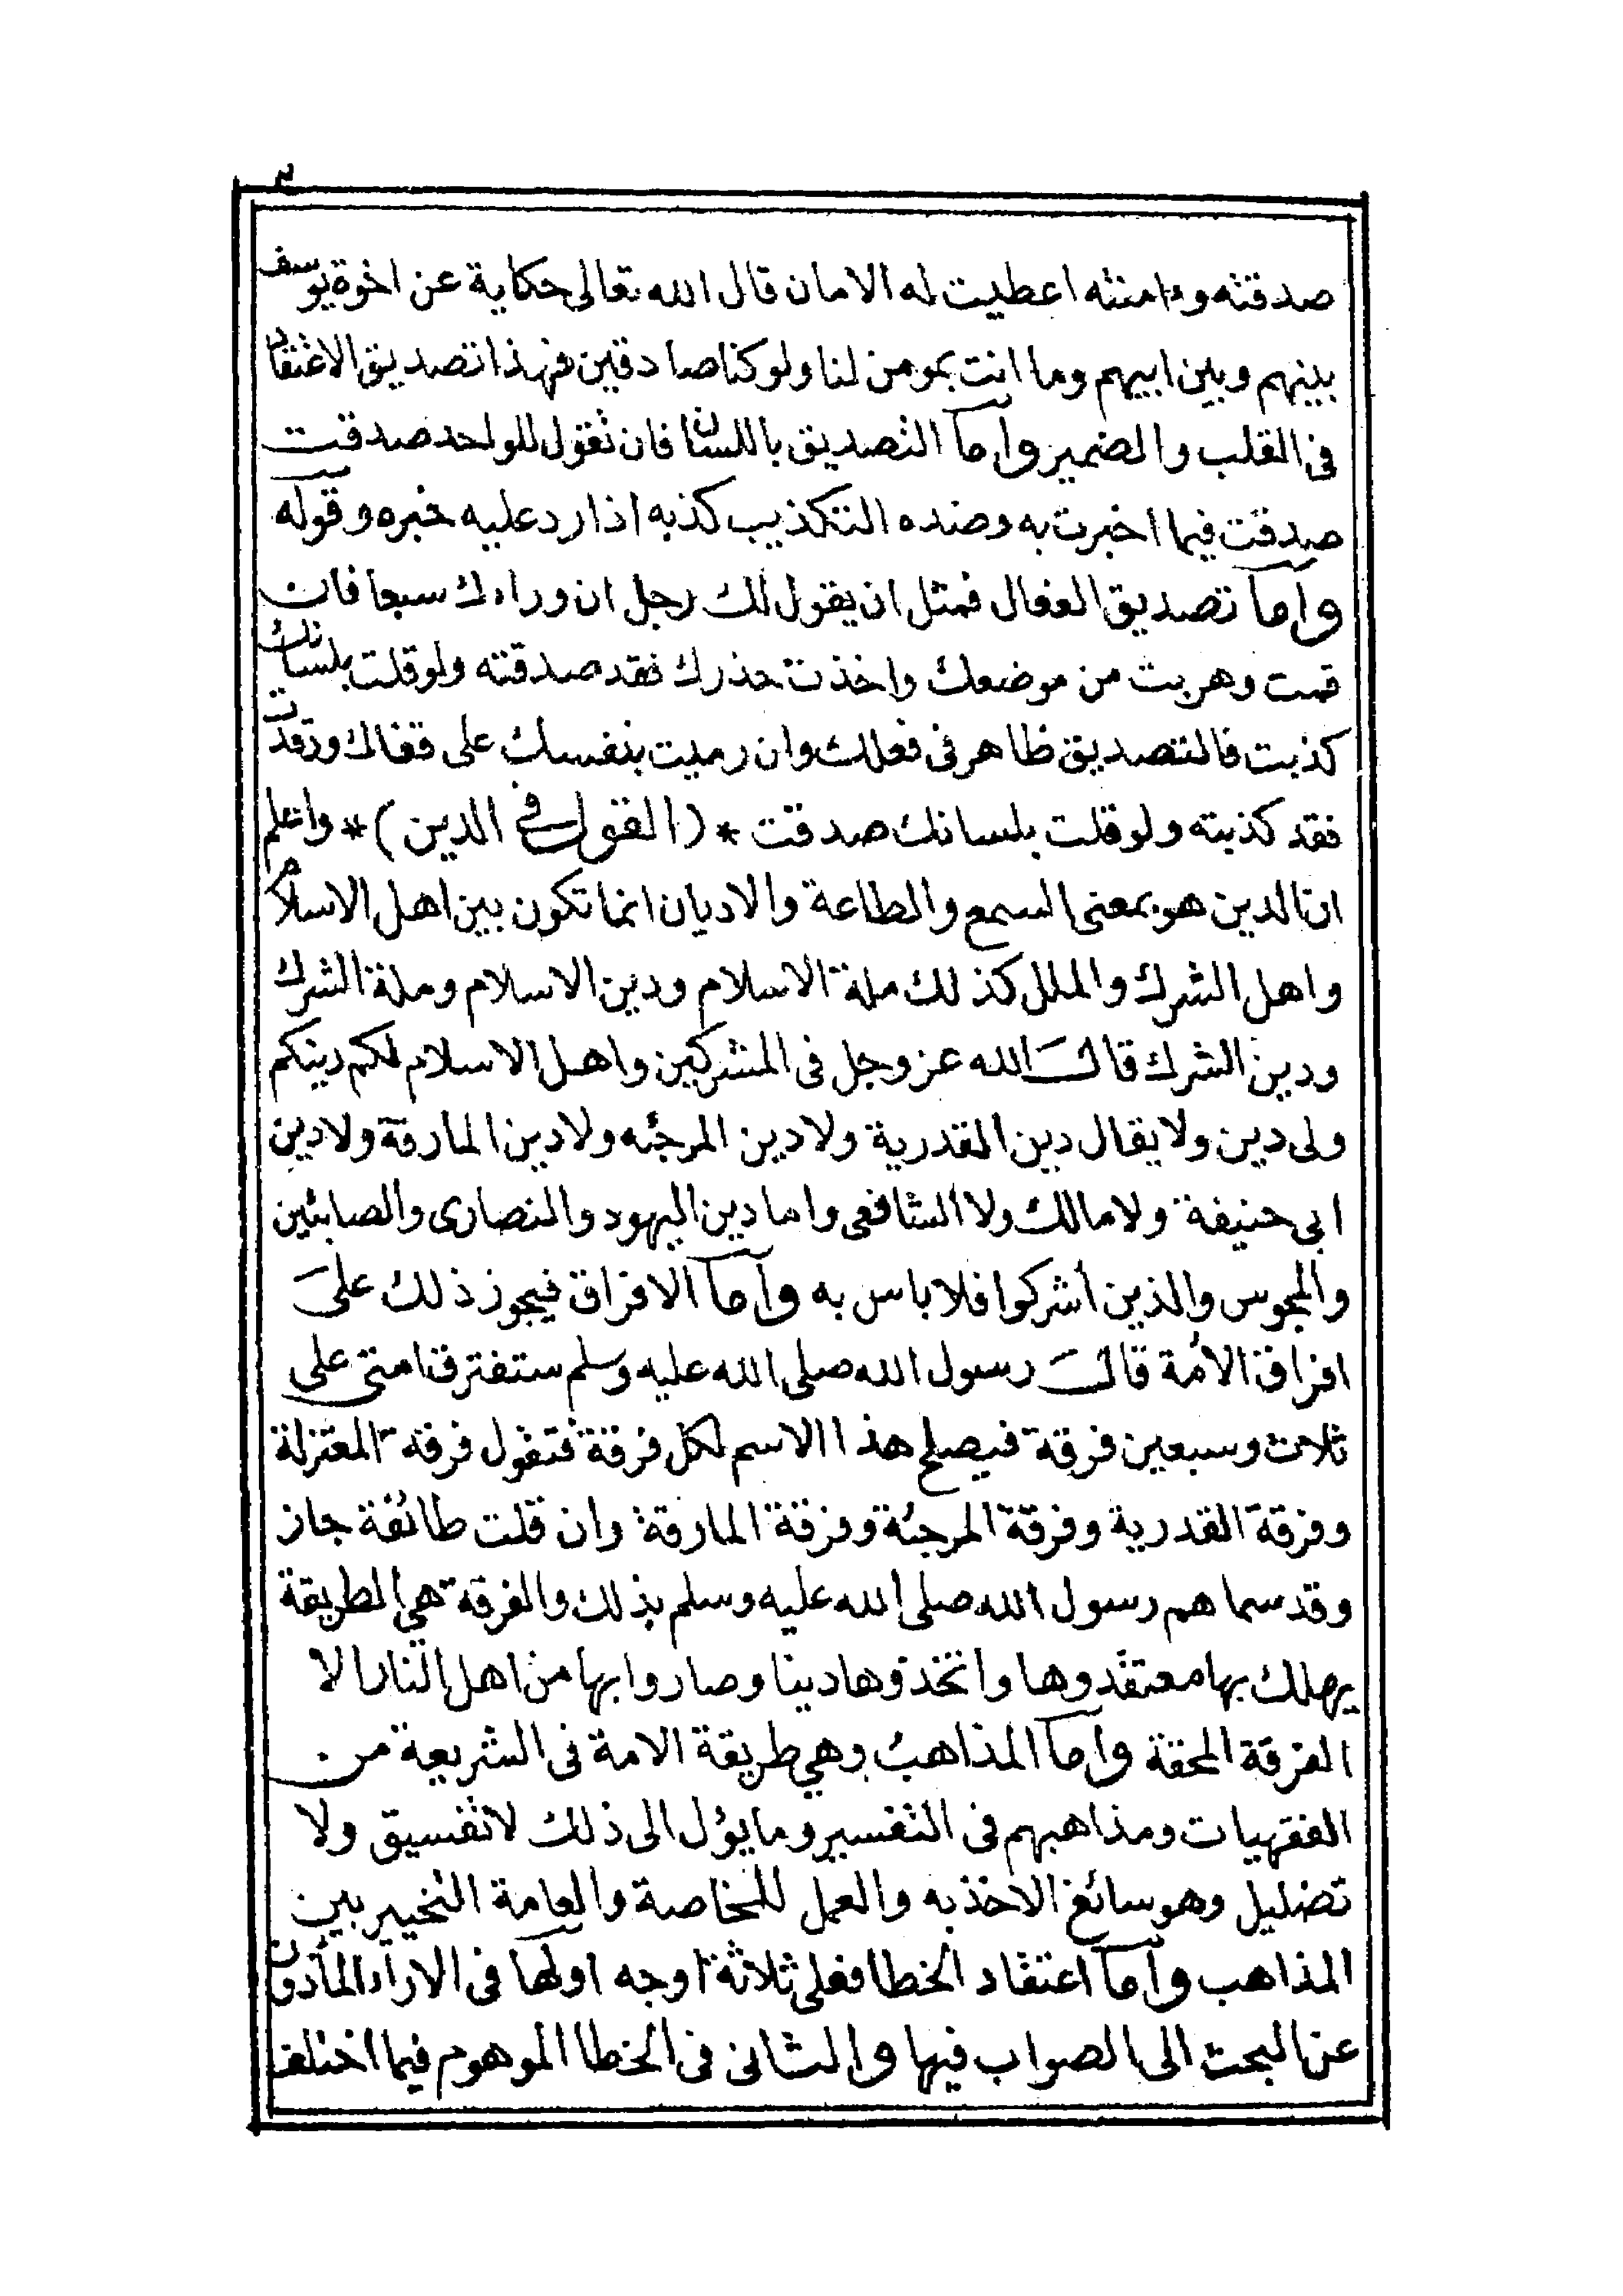 ٣
صدقته وءامنته اعطيت له الامان قال الله تعالى حكاية عن اخوة يوسف
بينهم وبين ابيهم وما انت بمومن لنا ولو كنا صادقين فهذا تصديق الاعتقاد
فى القلب والضمير وأما التصديق باللسان فان تقول للواحد صدقت
صدقت فيما اخبرت به وضده التكذيب كذبه اذا رد عليه خبره وقوله
وأما تصديق الفعال فمثل ان يقول لك رجل ان وراءك سبعا فان
قمت وهربت من موضعك واخذت حذرك فقد صدقته ولو قلت بلسانك
كذبت فالتصديق ظاهر فى فعلك وان رميت بنفسك على قفاك ورقدت
فقد كذبته ولو قلت بلسانك صدقت * (القول في الدين) * واعلم
ان الدين هو بمعنى السمع والطاعة والاديان انما تكون بين اهل الاسلام
واهل الشرك والملل كذلك ملة الاسلام ودين الاسلام وملة الشرك
ودين الشرك قال الله عز وجل فى المشركين واهل الاسلام لكم دينكم
ولى دين ولا يقال دين القدرية ولا دين المرجئه ولا دين المارقة ولا دين
ابى حنيفة ولا مالك ولا الشافعى واما دين اليهود والنصارى والصابئين
والمجوس والذين أشركوا فلا باس به وأما الافراق فيجوز ذلك على
افراق الأمة قال رسول الله صلى الله عليه وسلم ستفترق امتى على
ثلاث وسبعين فرقة فيصلح هذا الاسم لكل فرقة فتقول فرقة المعتزلة
وفرقة القدرية وفرقة المرجئة وفرقة المارقة وان قلت طائفة جاز
وقد سماهم رسول الله صلى الله عليه وسلم بذلك والفرقة هي الطريقة
يهلك بها معتقدوها واتخذوها دينا وصاروا بها من اهل النار الا
الفرقة المحقة وأما المذاهب وهي طريقة الامة فى الشريعة من
الفقهيات ومذاهبهم فى التفسير وما يؤل الى ذلك لا تفسيق ولا
تضليل وهو سائغ الاخذ به والعمل للخاصة والعامة التخيير بين
المذاهب وأما اعتقاد الخطا فعلى ثلاثة اوجه اولها فى الاراء المأذون
عن البحث الى الصواب فيها والثانى فى الخطا الموهوم فيما اختلف